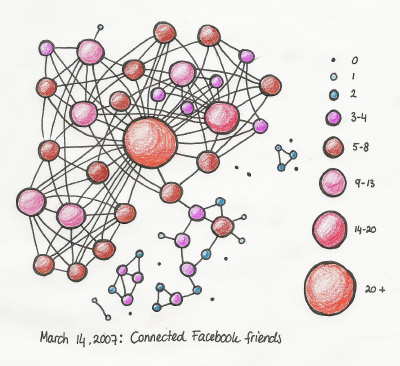 0
1
2
3-4
5-8
9-13
14-20
20+
March 14, 2007: Connected Facebook friends